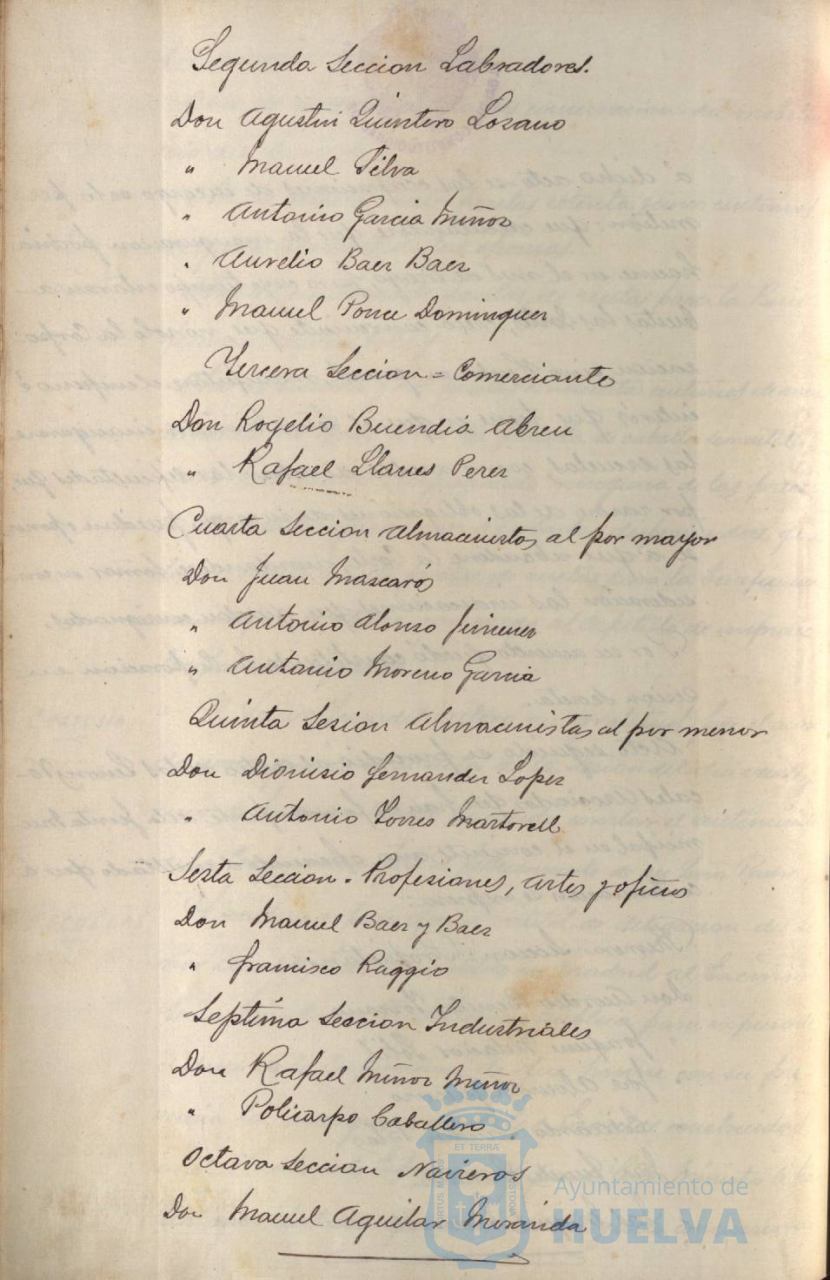 Segunda Seccion Labradores.
Don Agustin Quintero Lozano
" Manuel Silva
" Antonio Garcia Miñoz
" Aurelio Baez Baez
" Manuel Ponce Dominguez
Tercera Seccion = Comerciante
Don Rogelio Buendia Abreu
" Rafael Llanes Perez
Cuarta Seccion Almacenistas al por mayor
Don Juan Mascarós
" Antonio Alonso Jimenez
" Antonio Moreno Garcia
Quinta Sesion Almacenistas al por menor
Don Dionisio Fernandez Lopez
" Antonio Torres Martorell
Sexta Seccion. Profesiones, artes y oficios
Don Manuel Baez y Baez
" Francisco Raggio
Septima Seccion Industriales
Don Rafael Miñoz Miñoz
" Policarpo Caballero
Octava Seccion Navieros
Don Manuel Aguilar Moranda
ET TERRÆ
Ayuntamiento de
HUELVA